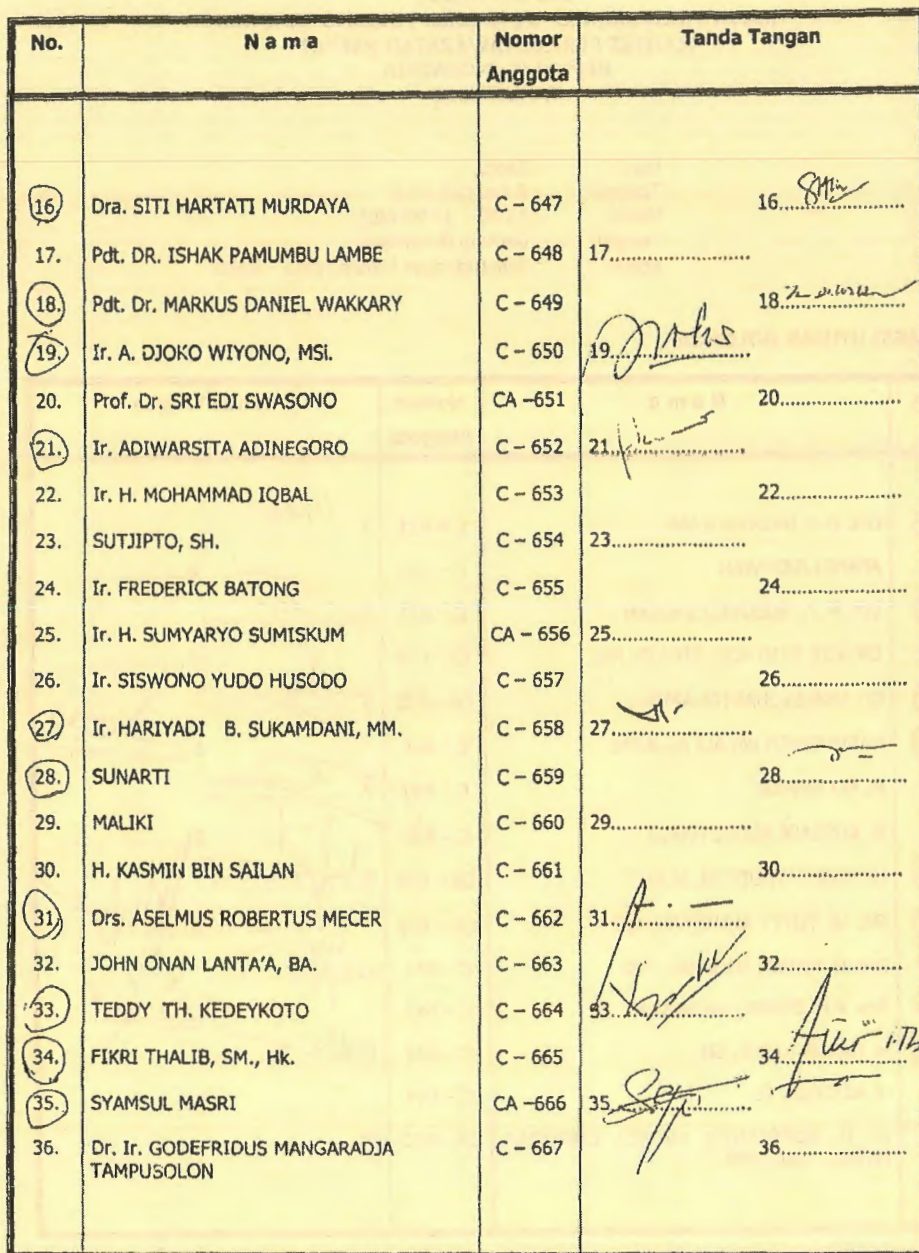 No. Nama Nomor Anggota Tanda Tangan
16. Dra. SITI HARTATI MURDAYA C – 647 16....................
17. Pdt. DR. ISHAK PAMUMBU LAMBE C – 648 17....................
18. Pdt. Dr. MARKUS DANIEL WAKKARY C – 649 18....................
19. Ir. A. DJOKO WIYONO, MSi. C – 650 19....................
20. Prof. Dr. SRI EDI SWASONO CA –651 20....................
21. Ir. ADIWARSITA ADINEGORO C – 652 21....................
22. Ir. H. MOHAMMAD IQBAL C – 653 22....................
23. SUTJIPTO, SH. C – 654 23....................
24. Ir. FREDERICK BATONG C – 655 24....................
25. Ir. H. SUMYARYO SUMISKUM CA – 656 25....................
26. Ir. SISWONO YUDO HUSODO C – 657 26....................
27. Ir. HARIYADI B. SUKAMDANI, MM. C – 658 27....................
28. SUNARTI C – 659 28....................
29. MALIKI C – 660 29....................
30. H. KASMIN BIN SAILAN C – 661 30....................
31. Drs. ASELMUS ROBERTUS MECER C – 662 31....................
32. JOHN ONAN LANTA'A, BA. C – 663 32....................
33. TEDDY TH. KEDEYKOTO C – 664 33....................
34. FIKRI THALIB, SM., Hk. C – 665 34....................
35. SYAMSUL MASRI CA –666 35....................
36. Dr. Ir. GODEFRIDUS MANGARADJA C – 667 36....................
TAMPUSOLON